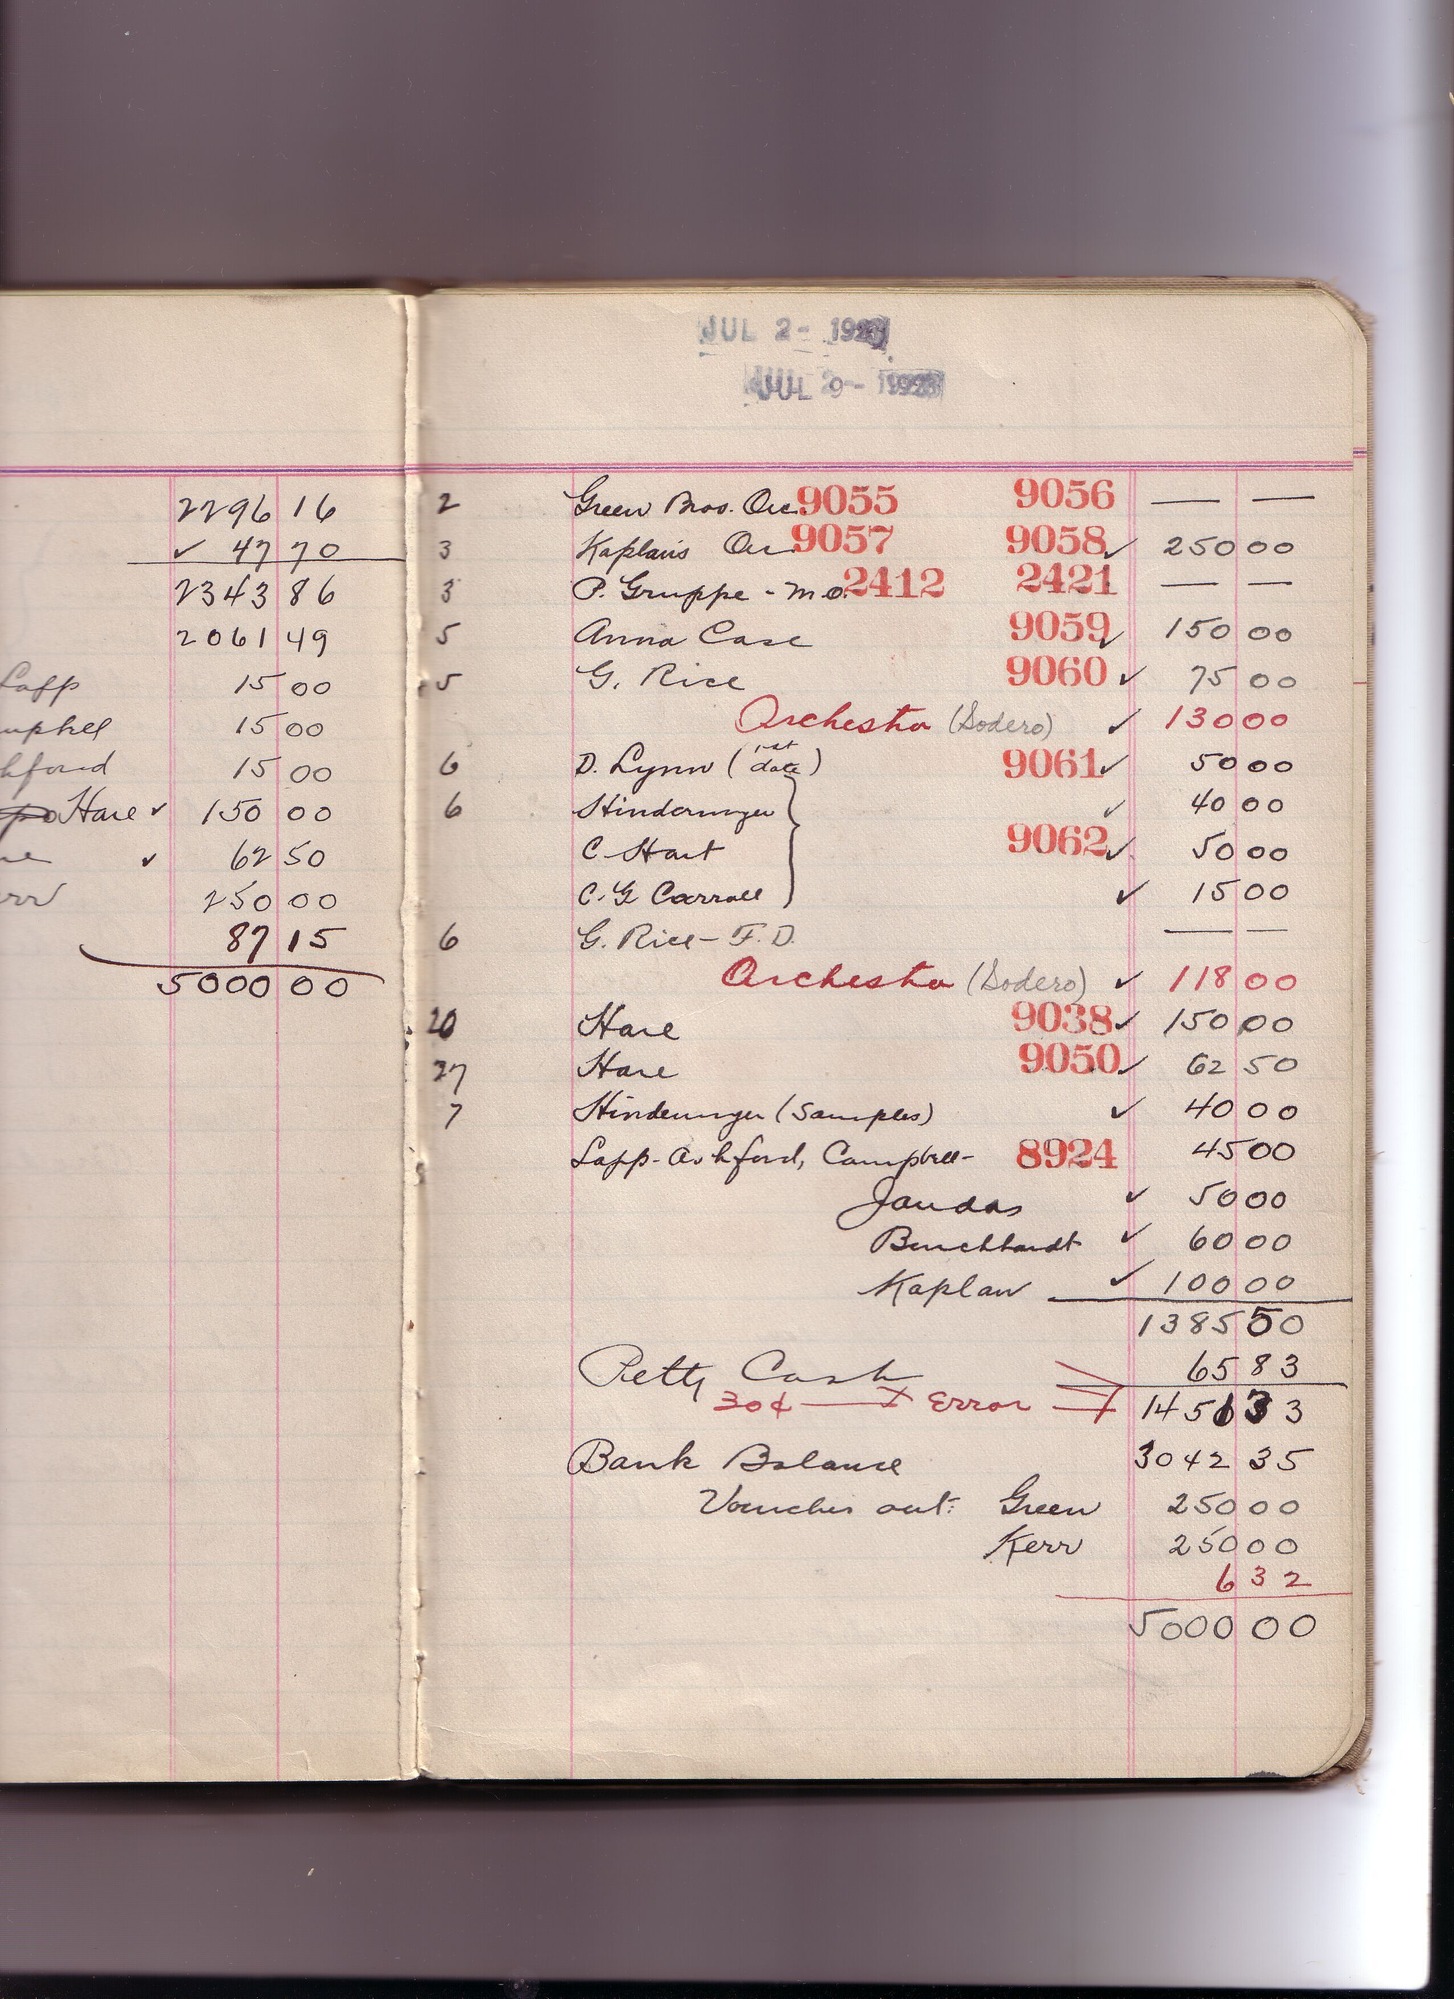 2296 16
✓ 47 70
2343 86
2061 49
Lapp 15 00
mphel 15 00
hford 15 00
Hare ✓ 150 00
✓ 62 50
rr 250 00
87 15
5000 00
JUL 2 - 1923
JUL 9 - 1923
2 Green Bros. Orc. 9055 9056 — —
3 Kaplan's Orc. 9057 9058 ✓ 250 00
3 P. Gruppe - m.o. 2412 2421 — —
5 Anna Case 9059 ✓ 150 00
5 G. Rice 9060 ✓ 75 00
Orchestra (Sodero) ✓ 130 00
6 D. Lynn (1st date) 9061 ✓ 50 00
6 Hindermyer ✓ 40 00
C. Hart 9062 ✓ 50 00
C. G. Carroll ✓ 15 00
6 G. Rice - F.D. — —
Orchestra (Sodero) ✓ 118 00
20 Hare 9038 ✓ 150 00
27 Hare 9050 ✓ 62 50
7 Hindermyer (Samples) ✓ 40 00
Lapp- Ashford, Campbell- 8924 45 00
Jaudas ✓ 50 00
Burckhardt ✓ 60 00
Kaplan ✓ 100 00
1385 50
Petty Cash 65 83
30¢ — X Error 1451 33
Bank Balance 3042 35
Voucher out: Green 250 00
Kerr 250 00
6 32
5000 00